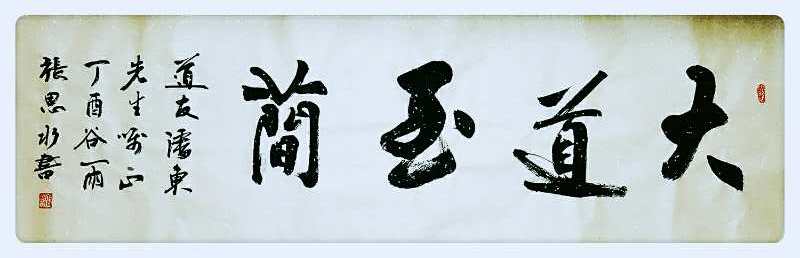 大道至簡
道友潘東
先生嘱正
丁酉谷雨
張思水書